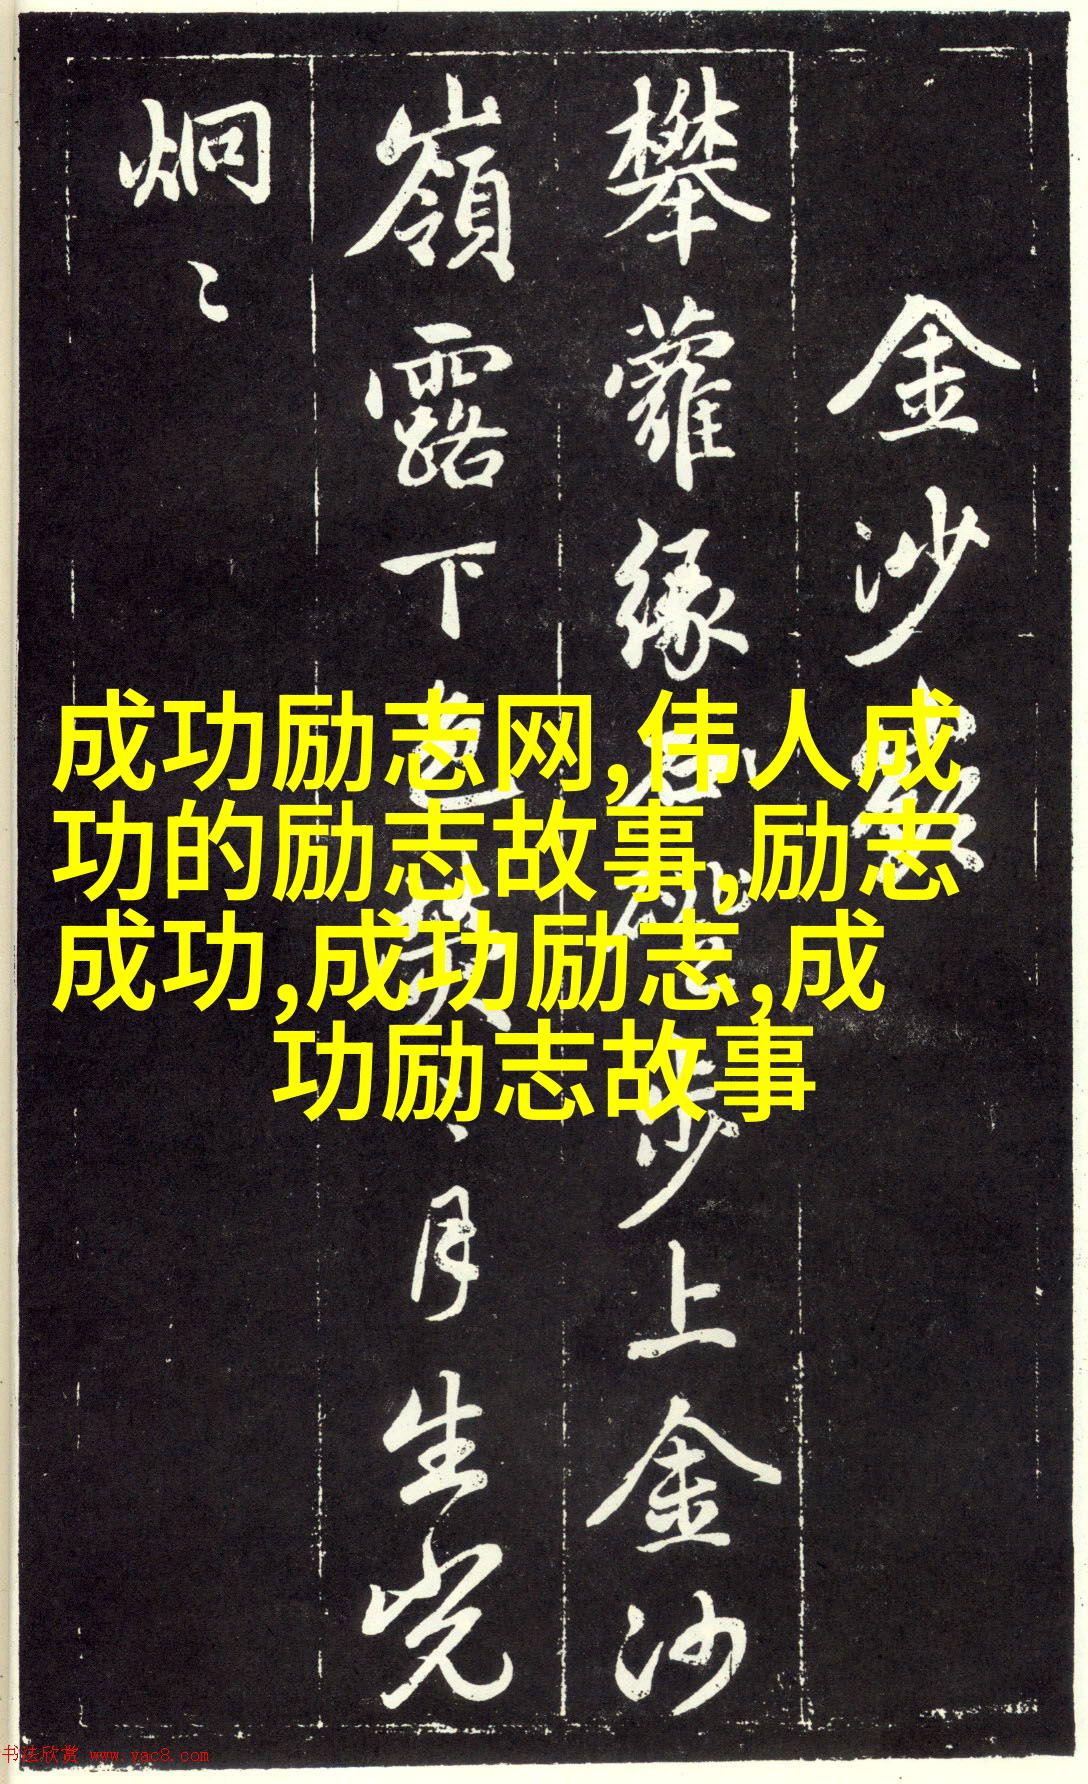 金沙
攀蘿緣步上金沙
嶺露下月生光
炯〻
成功励志网,伟人成
功的励志故事,励志
成功,成功励志,成
功励志故事
书法欣赏 www.yac8.com